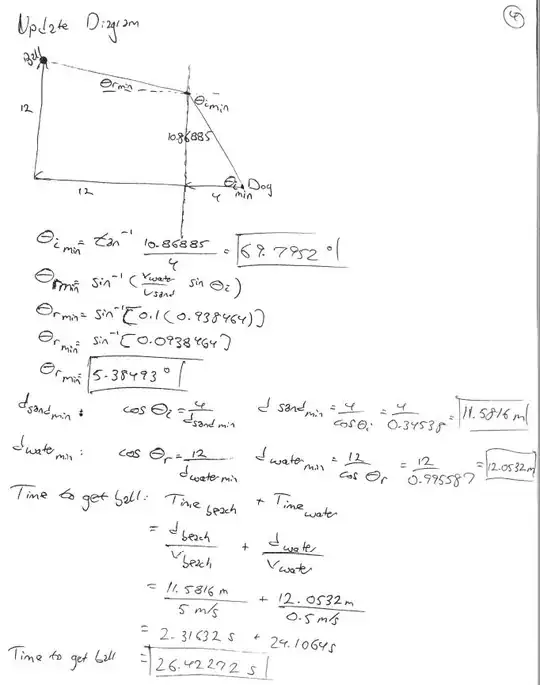 ④
Update Diagram
Ball
θrmin
θimin
12
10.86885
θi min Dog
12
4
θi min = tan⁻¹ 10.86885/4 = 69.7952°
θrmin = sin⁻¹ (Vwater/Vsand sin θi)
θrmin = sin⁻¹[0.1(0.938464)]
θrmin = sin⁻¹[0.0938464]
θrmin = 5.38493°
dsandmin: cos θi = 4/dsandmin dsandmin = 4/cosθi = 4/0.34538 = 11.5816 m
dwatermin: cos θr = 12/dwatermin dwatermin = 12/cos θr = 12/0.995587 = 12.0532m
Time to get ball: Timebeach + Timewater
= dbeach/Vbeach + dwater/Vwater
= 11.5816 m/5 m/s + 12.0532m/0.5 m/s
= 2.31632 s + 24.1064s
Time to get ball = 26.42272 s